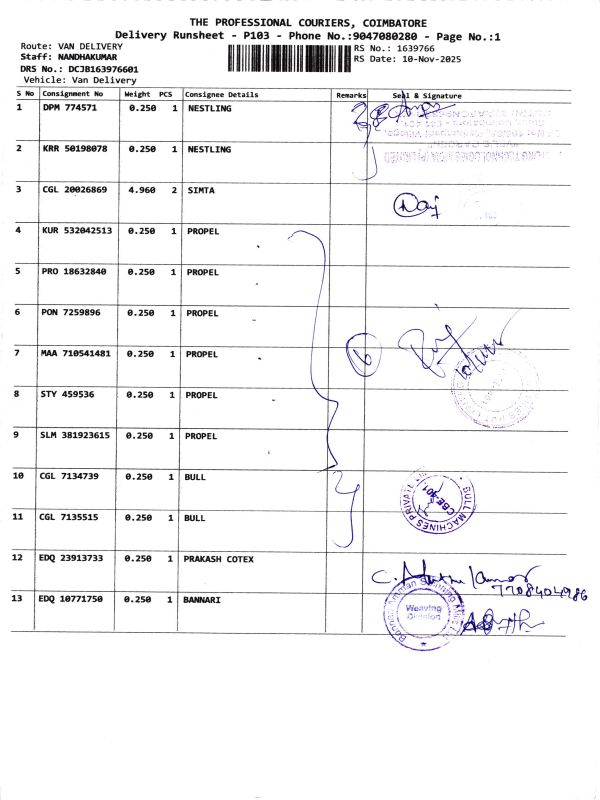 THE PROFESSIONAL COURIERS, COIMBATORE
Delivery Runsheet - P103 - Phone No.:9047080280 - Page No.:1
Route: VAN DELIVERY
RS No.: 1639766
Staff: NANDHAKUMAR
RS Date: 10-Nov-2025
DRS No.: DCJB163976601
Vehicle: Van Delivery
S No Consignment No Weight PCS Consignee Details Remarks Seal & Signature
1 DPM 774571 0.250 1 NESTLING
2 KRR 50198078 0.250 1 NESTLING
3 CGL 20026869 4.960 2 SIMTA
4 KUR 532042513 0.250 1 PROPEL
5 PRO 18632840 0.250 1 PROPEL
6 PON 7259896 0.250 1 PROPEL
7 MAA 710541481 0.250 1 PROPEL
8 STY 459536 0.250 1 PROPEL
9 SLM 381923615 0.250 1 PROPEL
10 CGL 7134739 0.250 1 BULL
BULL MACHINES PRIVATE
11 CGL 7135515 0.250 1 BULL
12 EDQ 23913733 0.250 1 PRAKASH COTEX
7708404986
13 EDQ 10771750 0.250 1 BANNARI
Weaving
Division